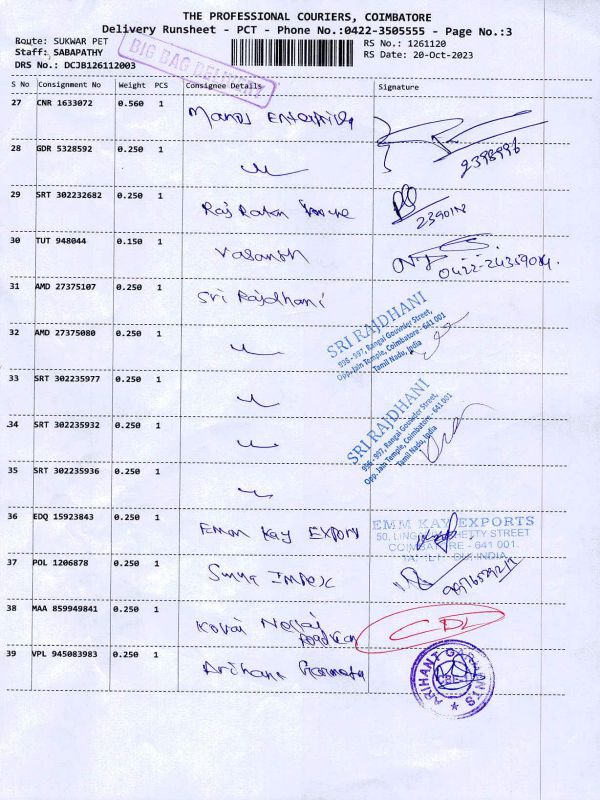 THE PROFESSIONAL COURIERS, COIMBATORE
Delivery Runsheet - PCT - Phone No.:0422-3505555 - Page No.:3
Route: SUKWAR PET
Staff: SABAPATHY
DRS No.: DCJB126112003
BIG BAG DELIVERY
RS No.: 1261120
RS Date: 20-Oct-2023
S No Consignment No Weight PCS Consignee Details Signature
27 CNR 1633072 0.560 1 Enterprise
28 GDR 5328592 0.250 1
2398996
29 SRT 302232682 0.250 1 Raj Ratan
30 TUT 948044 0.150 1 Vasanth
31 AMD 27375107 0.250 1 Sri Rajdhani
32 AMD 27375080 0.250 1
SRI RAJDHANI
996 - 997, Rangai Gowinder Street,
Opp. Jain Temple, Coimbatore - 641 001
Tamil Nadu, India
33 SRT 302235977 0.250 1
34 SRT 302235932 0.250 1
SRI RAJDHANI
996 - 997, Rangai Gowinder Street,
Opp. Jain Temple, Coimbatore - 641 001
Tamil Nadu, India
35 SRT 302235936 0.250 1
36 EDQ 15923843 0.250 1 Kay Export
EMM KAY EXPORTS
50, CHETTY STREET
COIMBATORE - 641 001.
INDIA
37 POL 1206878 0.250 1 Impex
38 MAA 859949841 0.250 1 Kovai
39 VPL 945083983 0.250 1 Arihant Garments
ARIHANT GARMENTS
CBE-1